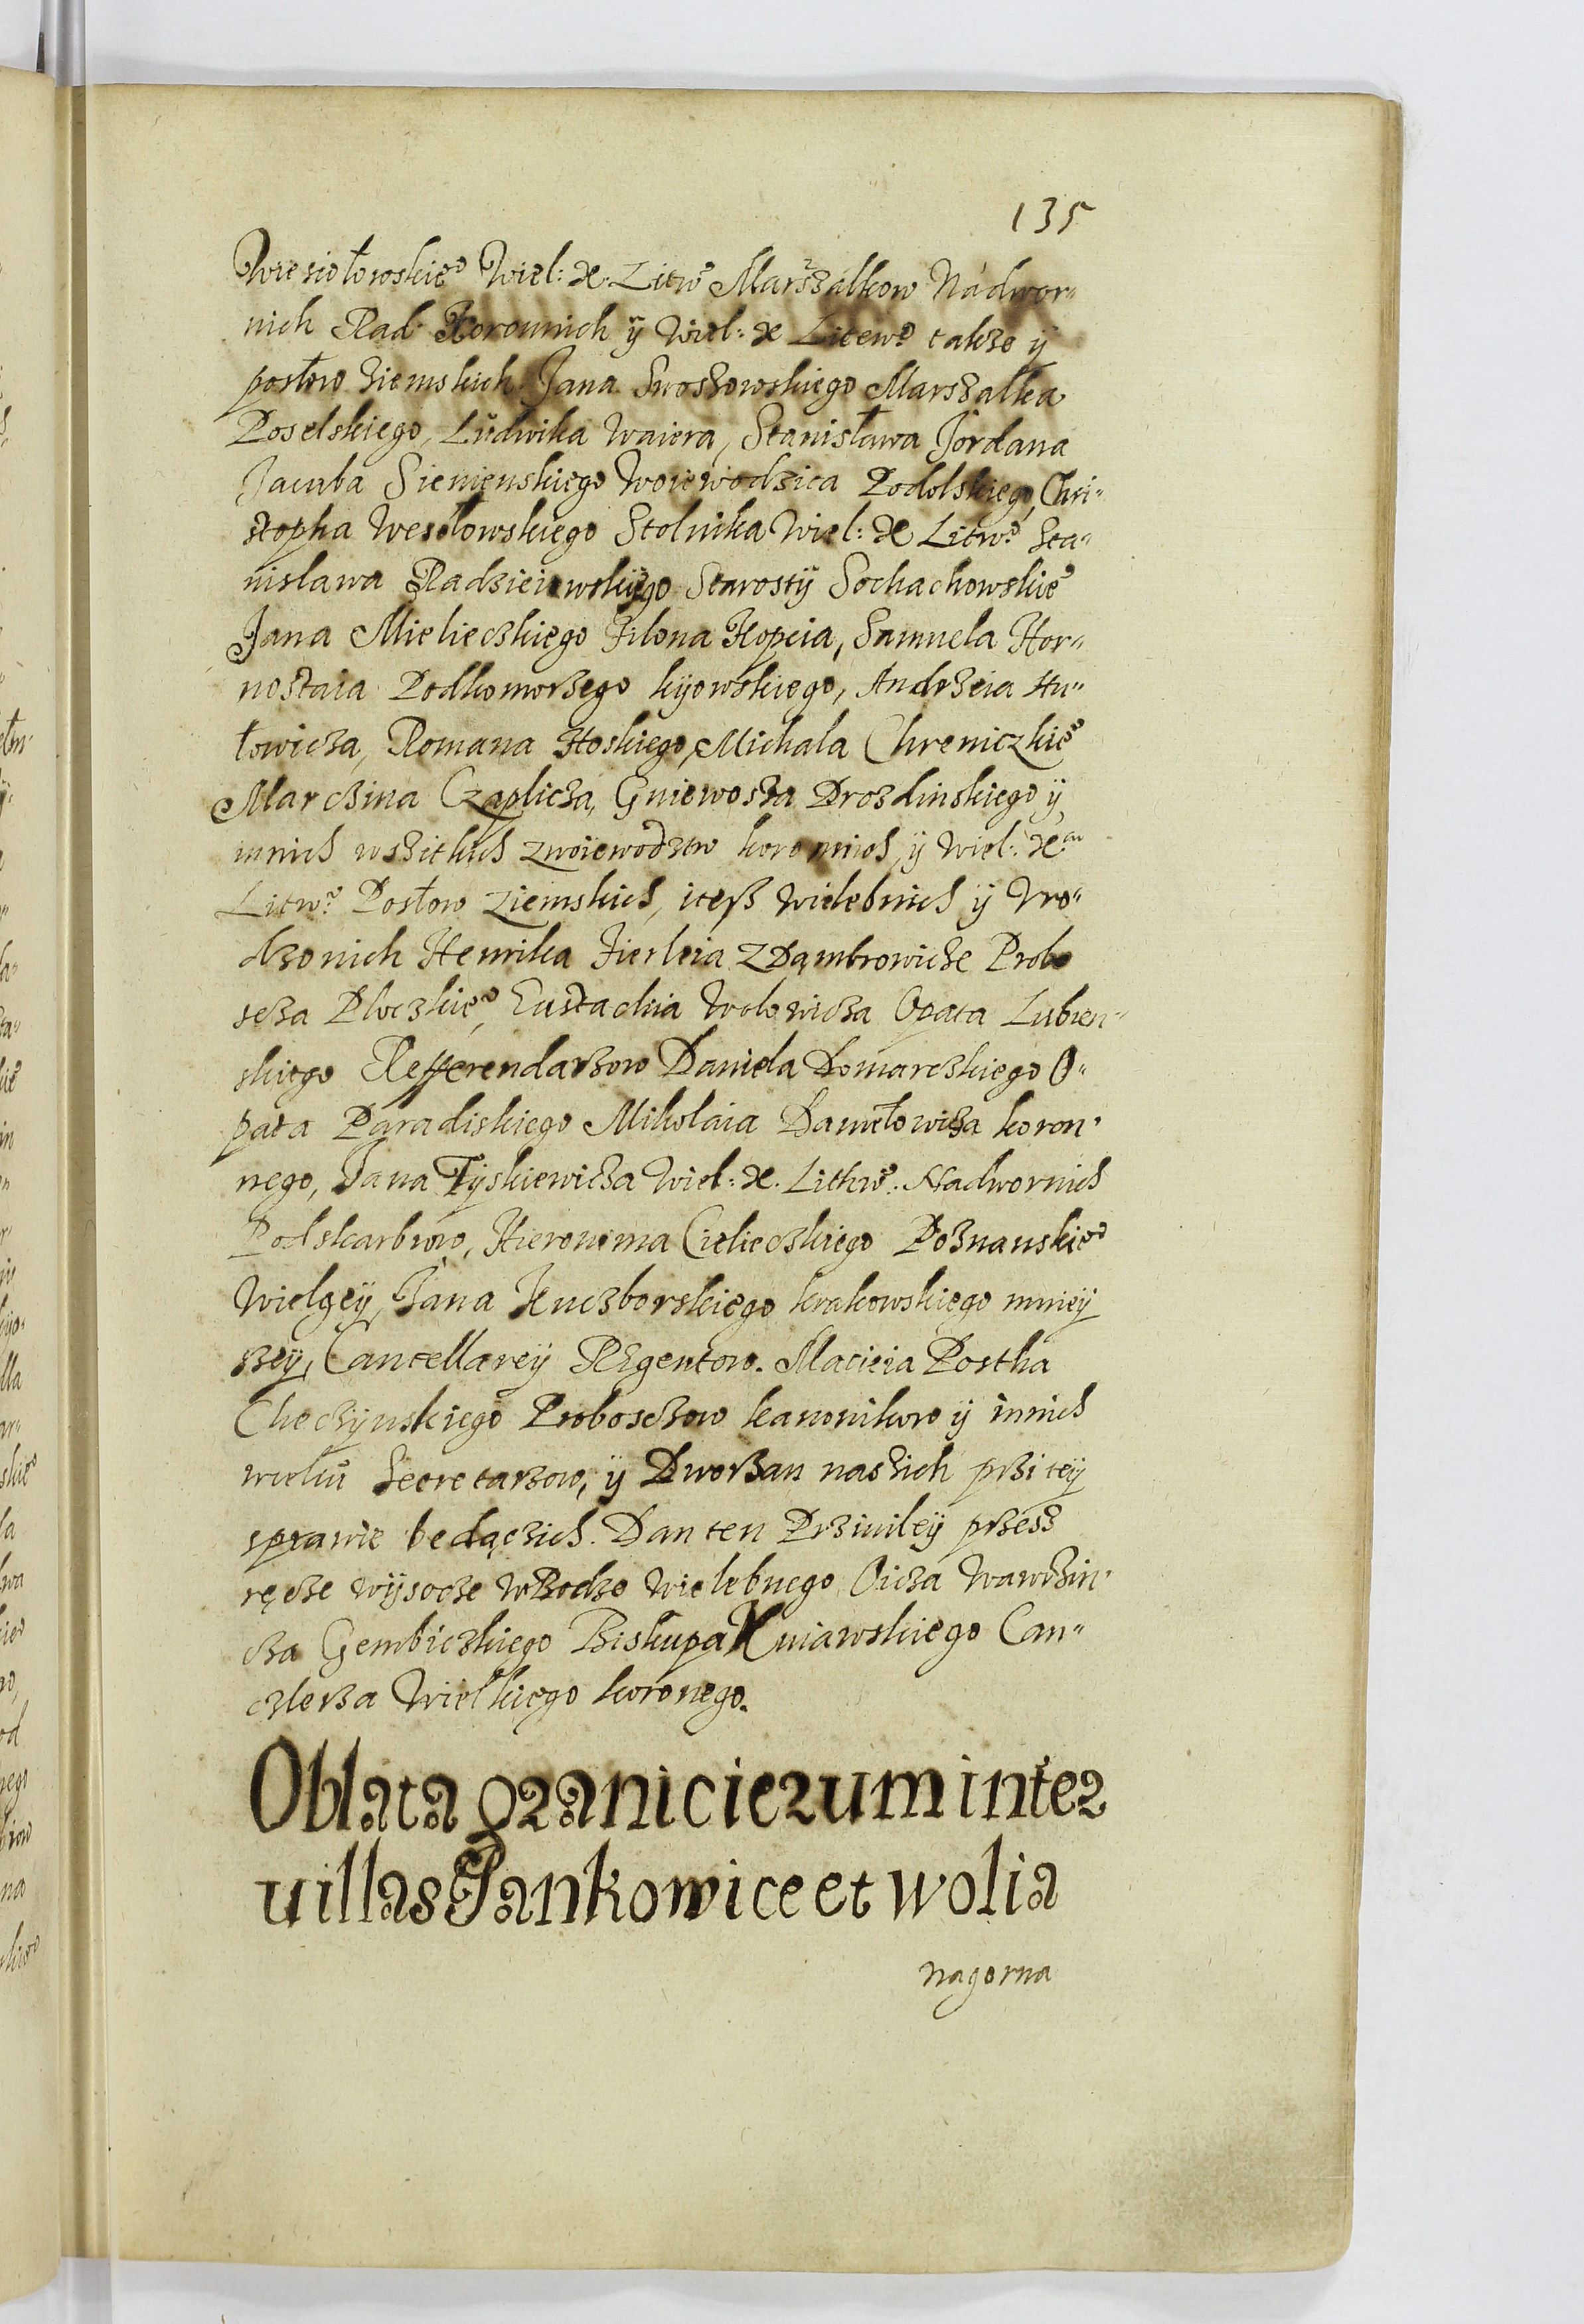 135
Wiesiołowskie° Wiel: X. Litw° Marszałkow Nadwor„
nich Rad Koronnich ÿ Wiel: X Litew° takze ÿ
posłow ziemskich. Jana Swoszowskiego Marszałka
Poselskiego, Ludwika Waiera, Stanisława Jordana
Jacuba Sienienskiego Woiewodzica Podolskiego, Chri„
stopha Wesołowskiego Stolnika Wiel: X Litw° Sta„
nislawa Radzieiowskÿgo Starostÿ Sochachowskie°
Jana Mielieczkiego Filona Kopcia, Samuela Hor„
nostaia Podkomorzego kÿowskiego, Andrzeia Hu„
łowicza, Romana Hoskiego, Michala Chreniczkie°
Marczina Czaplicza, Gniewosza Drozdinskiego ÿ
innich wszitkich zwoiewodztw koronnich ÿ Wiel: X.
Litw° Posłow ziemskich, itesz wielebnich ÿ Vro„
dzonich Henrika Firleia z Dąmbrowicze Probo
scza Ploczkie°, Eustachia Wolowicza Opata Lubien„
skiego Refferendarzow Daniela Domareczkiego O„
pata Paradiskiego Mikolaia Daniełowicza koron„
nego, Jana Tÿskiewicza Wiel: X. Lithw°. Nadwornich
Podskarbiow, Hieronima Cielieczkiego Poznanskie°
Wielgeÿ, Jana Kuczborskiego krakowskiego mnieÿ
szeÿ, Cantellareÿ REgentow. Macieia Postka
Checzÿnskiego Proboszczow kanonikow ÿ innich
wielu Secretarzow, ÿ Dworzan naszich przi teÿ
sprawie będączich. Dan ten Prziuileÿ przesz
ręcze wÿsocze Wrodzo Wielebnego Oicza Wawrzin„
cza Gembiczkiego Biskupa Kuiawskiego Can„
czlerza Wielkiego koronego.
Oblata granicierum inter
uillas Pankowice et wolia
nagorna